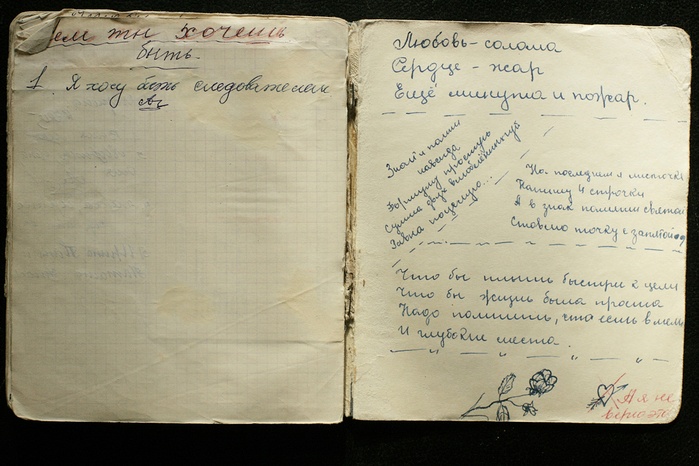 ем ты хочешь
быть
1. Я хочу быть следователем
Любовь - солома
Сердце - жар
Ещё минута и пожар.
Знай и помни
навсегда
Формулу простую
Сумма двух влюблённостей
Равна поцелую...
На последнем я листочке
Напишу 4 строчки
А в знак памяти святой
Ставлю точку с запятой
Что бы плыть быстрей к цели
Что бы жизнь была проста
Надо помнить, что есть в мели
И глубокие места.
А я не
верю это